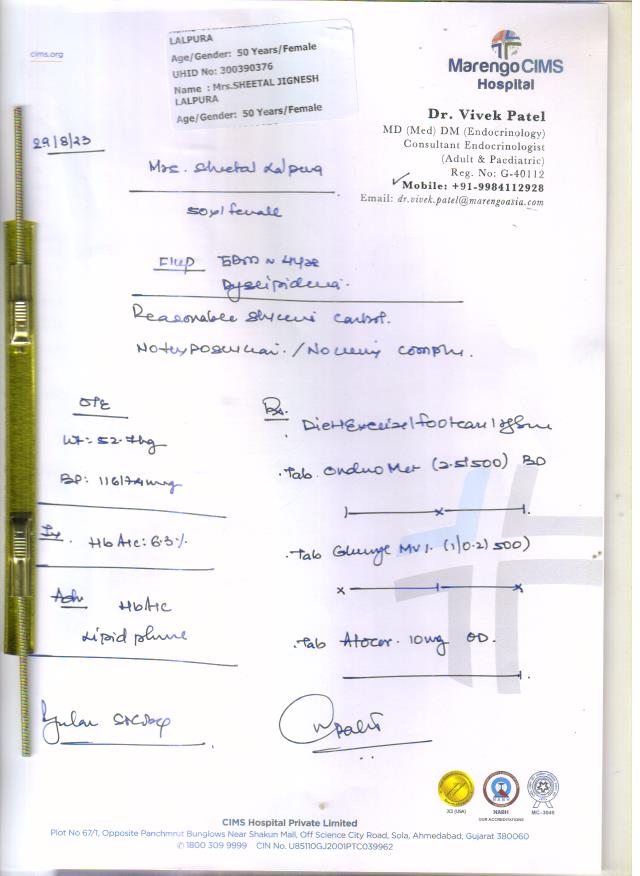 cims.org
LALPURA
Age/Gender: 50 Years/Female
UHID No: 300390376
Name : Mrs.SHEETAL JIGNESH
LALPURA
Age/Gender: 50 Years/Female
Marengo CIMS
Hospital
Dr. Vivek Patel
MD (Med) DM (Endocrinology)
Consultant Endocrinologist
(Adult & Paediatric)
Reg. No: G-40112
Mobile: +91-9984112928
Email: dr.vivek.patel@marengoasia.com
29/8/23
Mrs. Sheetal Lalpura
50y/female
Dyslipidemia.
Reasonable glycemic control.
O/E
Wt = 52.7kg
BP: 116/74 mmHg
HbA1c: 6.3%
Adv HbA1c
Lipid profile
Rx.
Diet/Exercise/footcare
. Tab. Ondero Met (2.5/500) BD
x
. Tab (1/0.2/500)
x x
. Tab Atocor 10mg OD.
X3 (USA)
NABH
OUR ACCREDITATIONS
MC-3049
CIMS Hospital Private Limited
Plot No 67/1, Opposite Panchmrut Bunglows Near Shakun Mall, Off Science City Road, Sola, Ahmedabad, Gujarat 380060
1800 309 9999 CIN No. U85110GJ2001PTC039962